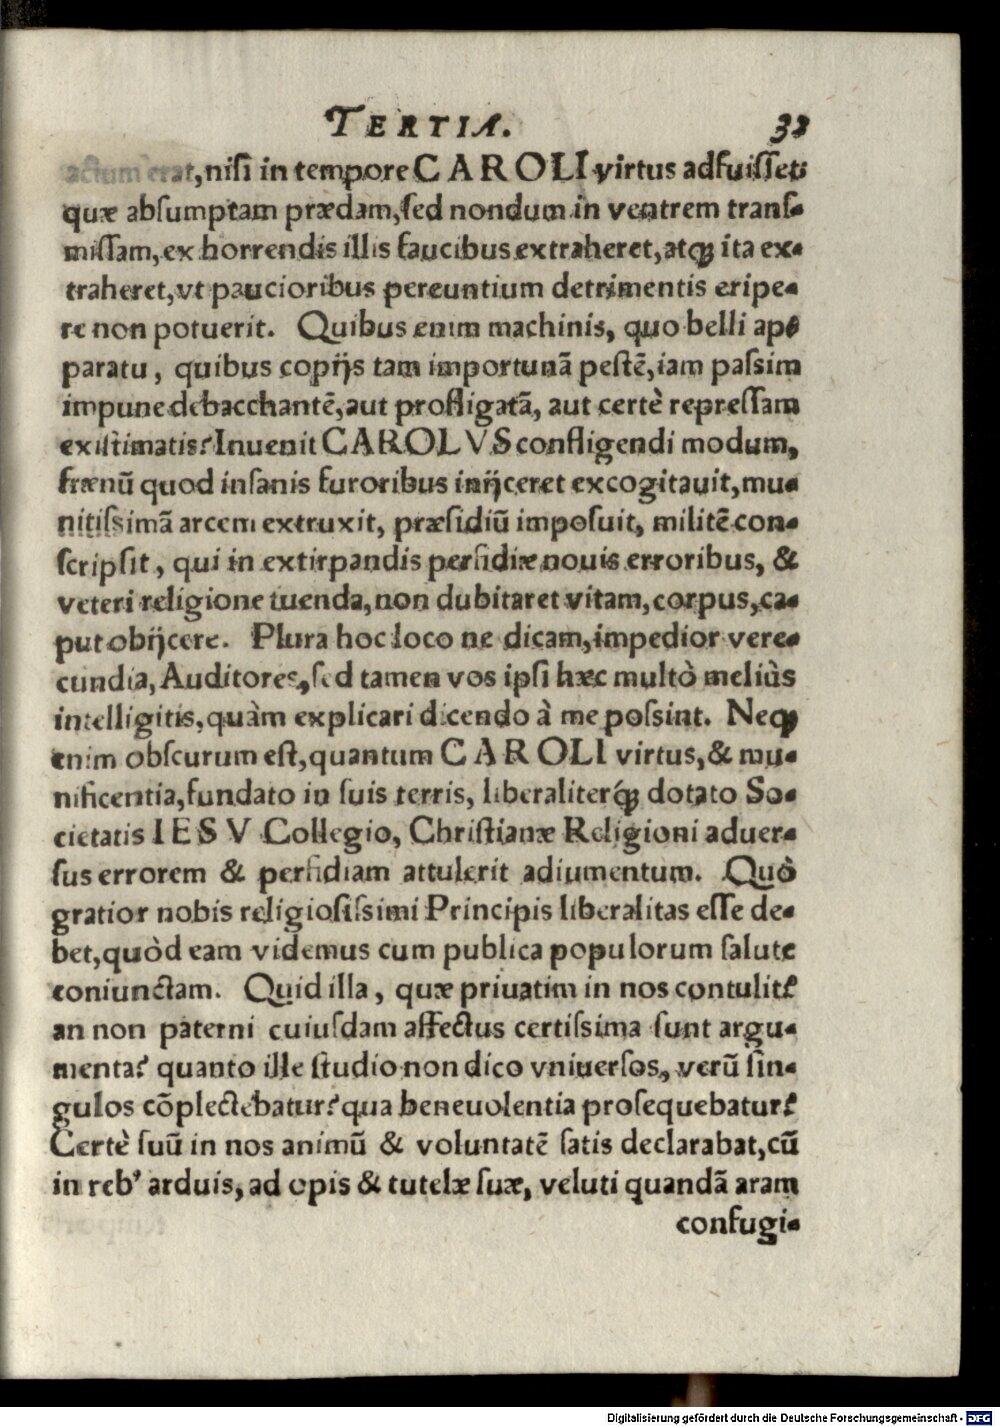 TERTIA. 32
actum erat, niſi in tempore CAROLI virtus adfuiſſet:
quæ abſumptam prædam, ſed nondum in ventrem tranſ-
miſſam, ex horrendis illis faucibus extraheret, atq́ꝫ ita ex-
traheret, vt paucioribus pereuntium detrimentis eripe-
re non potuerit. Quibus enim machinis, quo belli ap-
paratu, quibus copijs tam importunã peſtẽ, iam paſsim
impune debacchantẽ, aut profligatã, aut certè repreſſam
exiſtimatis? Inuenit CAROLVS confligendi modum,
frænũ quod inſanis furoribus inijceret excogitauit, mu-
nitiſsimã arcem extruxit, præſidiũ impoſuit, militẽ con-
ſcripſit, qui in extirpandis perfidiæ nouis erroribus, &
veteri religione tuenda, non dubitaret vitam, corpus, ca-
put obijcere. Plura hoc loco ne dicam, impedior vere-
cundia, Auditores, ſed tamen vos ipſi hæc multò meliùs
intelligitis, quàm explicari dicendo à me poſsint. Neqꝫ
enim obſcurum eſt, quantum CAROLI virtus, & mu-
nificentia, fundato in ſuis terris, liberaliterq́ꝫ dotato So-
cietatis IESV Collegio, Chriſtianæ Religioni aduer-
ſus errorem & perfidiam attulerit adiumentum. Quò
gratior nobis religioſiſsimi Principis liberalitas eſſe de-
bet, quòd eam videmus cum publica populorum ſalute
coniunctam. Quid illa, quæ priuatim in nos contulit?
an non paterni cuiuſdam affectus certiſsima ſunt argu-
menta? quanto ille ſtudio non dico vniuerſos, verũ ſin-
gulos cõplectebatur? qua beneuolentia proſequebatur?
Certè ſuũ in nos animũ & voluntatẽ ſatis declarabat, cũ
in reb⁹ arduis, ad opis & tutelæ ſuæ, veluti quandã aram
confugi-
Digitalisierung gefördert durch die Deutsche Forschungsgemeinschaft - DFG